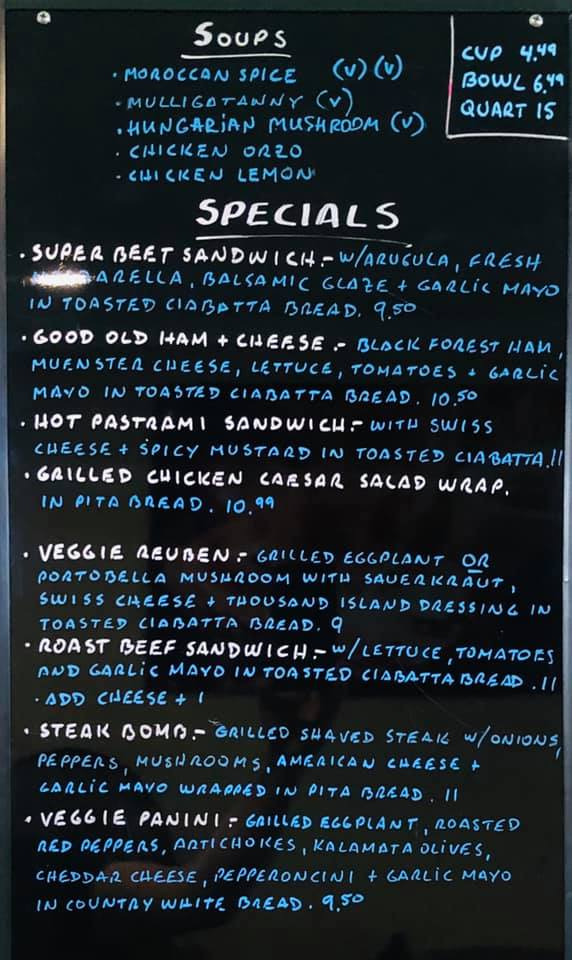 SOUPS
· MOROCCAN SPICE (V) (V)
· MULLIGATANNY (V)
· HUNGARIAN MUSHROOM (V)
· CHICKEN ORZO
· CHICKEN LEMON
CUP 4.49
BOWL 6.49
QUART 15
SPECIALS
· SUPER BEET SANDWICH:- W/ARUGULA, FRESH
MOZZARELLA, BALSAMIC GLAZE + GARLIC MAYO
IN TOASTED CIABATTA BREAD. 9.50
· GOOD OLD HAM + CHEESE :- BLACK FOREST HAM,
MUENSTER CHEESE, LETTUCE, TOMATOES + GARLIC
MAYO IN TOASTED CIABATTA BREAD. 10.50
· HOT PASTRAMI SANDWICH:- WITH SWISS
CHEESE + SPICY MUSTARD IN TOASTED CIABATTA.11
· GRILLED CHICKEN CAESAR SALAD WRAP.
IN PITA BREAD. 10.99
· VEGGIE REUBEN:- GRILLED EGGPLANT OR
PORTOBELLA MUSHROOM WITH SAUERKRAUT,
SWISS CHEESE + THOUSAND ISLAND DRESSING IN
TOASTED CIABATTA BREAD. 9
· ROAST BEEF SANDWICH:- W/LETTUCE, TOMATOES
AND GARLIC MAYO IN TOASTED CIABATTA BREAD. 11
· ADD CHEESE + 1
· STEAK BOMB:- GRILLED SHAVED STEAK W/ONIONS,
PEPPERS, MUSHROOMS, AMERICAN CHEESE +
GARLIC MAYO WRAPPED IN PITA BREAD. 11
· VEGGIE PANINI:- GRILLED EGGPLANT, ROASTED
RED PEPPERS, ARTICHOKES, KALAMATA OLIVES,
CHEDDAR CHEESE, PEPPERONCINI + GARLIC MAYO
IN COUNTRY WHITE BREAD. 9.50